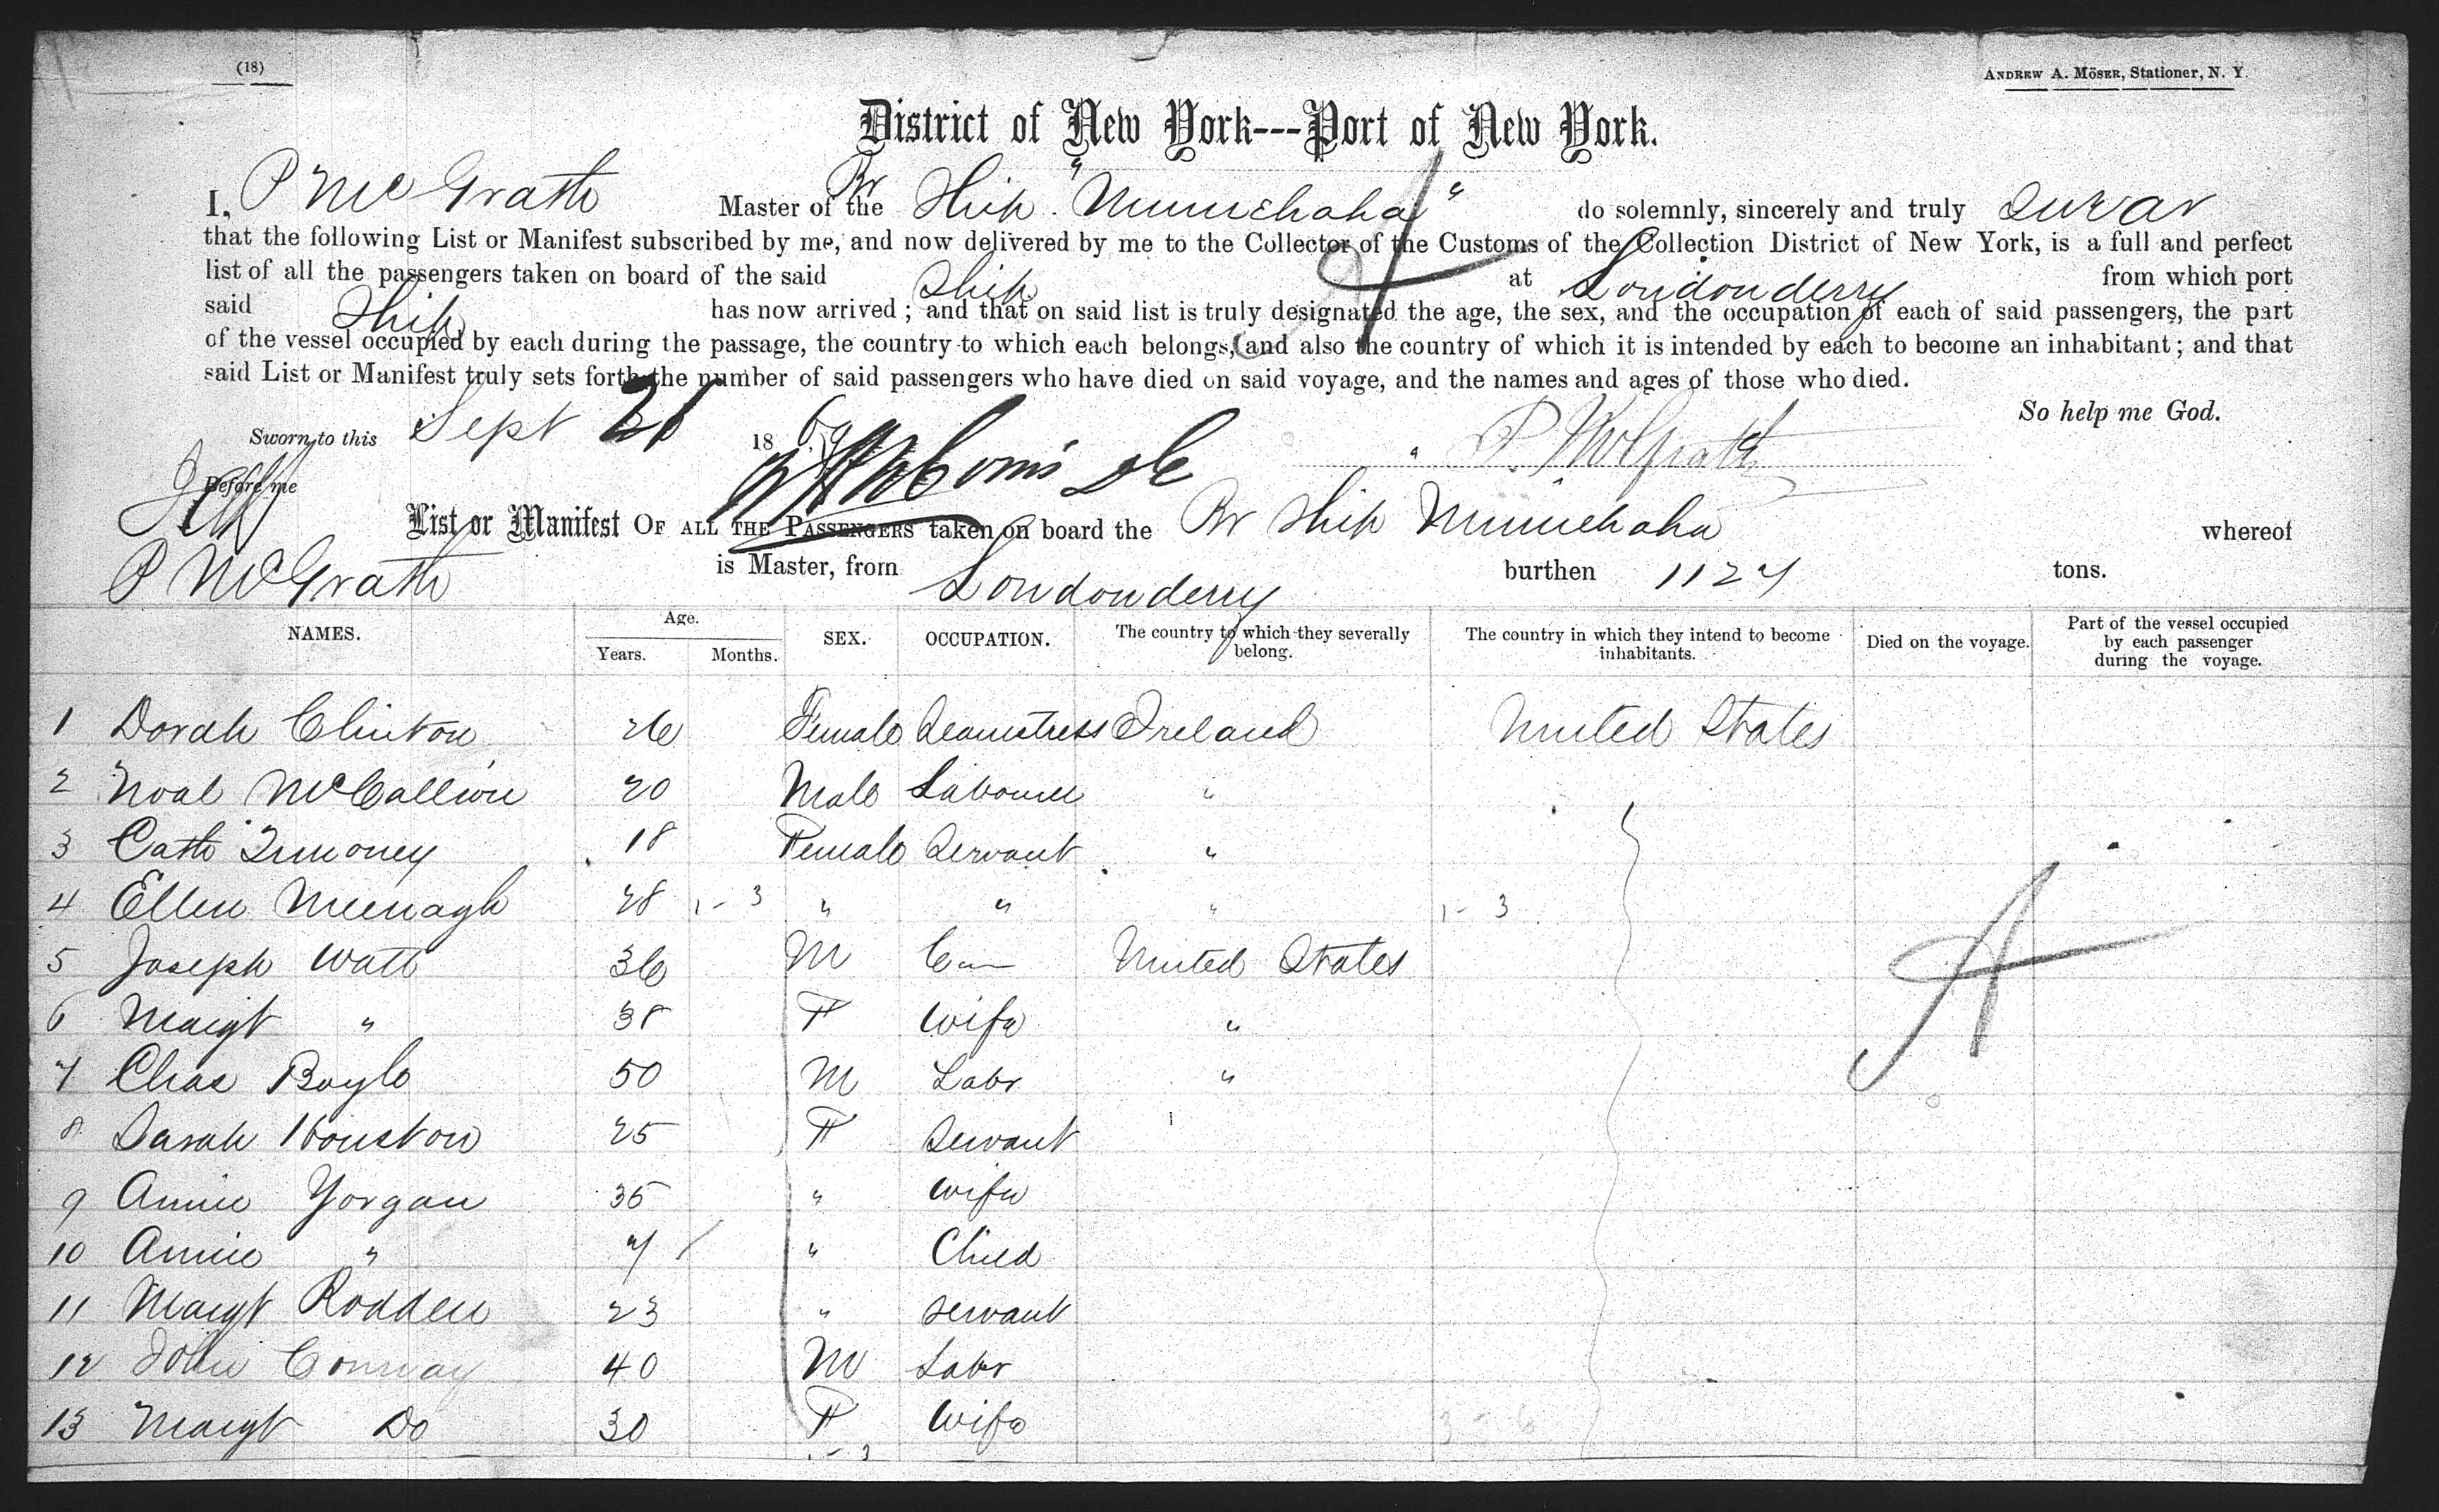 (18)
ANDREW A. MÖSER, Stationer, N. Y.
District of New York---Port of New York.
I, P McGrath Master of the Br Ship "Minnehaha" do solemnly, sincerely and truly swear
that the following List or Manifest subscribed by me, and now delivered by me to the Collector of the Customs of the Collection District of New York, is a full and perfect
list of all the passengers taken on board of the said Ship at Londonderry from which port
said Ship has now arrived; and that on said list is truly designated the age, the sex, and the occupation of each of said passengers, the part
of the vessel occupied by each during the passage, the country to which each belongs, and also the country of which it is intended by each to become an inhabitant; and that
said List or Manifest truly sets forth the number of said passengers who have died on said voyage, and the names and ages of those who died.
So help me God.
Sworn to this Sept 21 18 P. McGrath
Before me
List or Manifest OF ALL THE PASSENGERS taken on board the Br Ship Minnehaha whereof
P McGrath is Master, from Londonderry burthen 1127 tons.
NAMES. Age. Years. Months. SEX. OCCUPATION. The country to which they severally belong. The country in which they intend to become inhabitants. Died on the voyage. Part of the vessel occupied by each passenger during the voyage.
1 Dorah Clinton 26 Female Seamstress Ireland United States
2 Noal McCallion 20 Male Labourer "
3 Cath Timoney 18 Female Servant "
4 Ellen Meenagh 28 1-3 " " " 1-3
5 Joseph Watt 36 M United States
6 Margt " 38 F Wife "
7 Chas Boyle 50 M Labr "
8 Sarah Houston 25 F Servant
9 Annie Yorgan 35 " Wife
10 Annie " 7 " Child
11 Margt Rodden 23 " Servant
12 John Conway 40 M Labr
13 Margt Do 30 F Wife